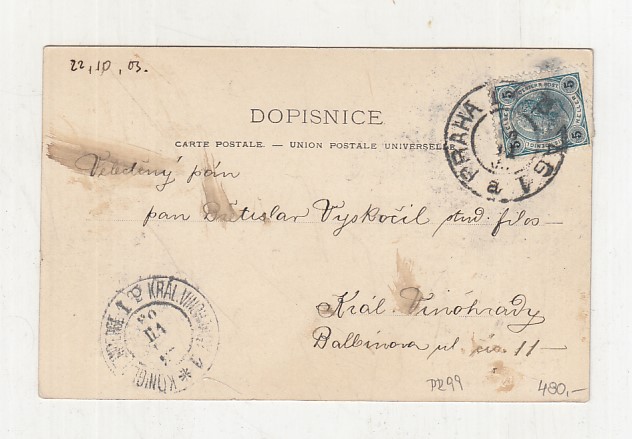 22,10,03.
DOPISNICE
CARTE POSTALE. — UNION POSTALE UNIVERSELLE
5 5
5 5
PRAHA 1
a
Velectěný pán
pan Břetislav Vyskočil stud. filos –
Král. Vinohrady
Balbínova ul. čís. 11 –
KRÁL. VINOHRADY 1
KÖNIGL.
PR99
480,-